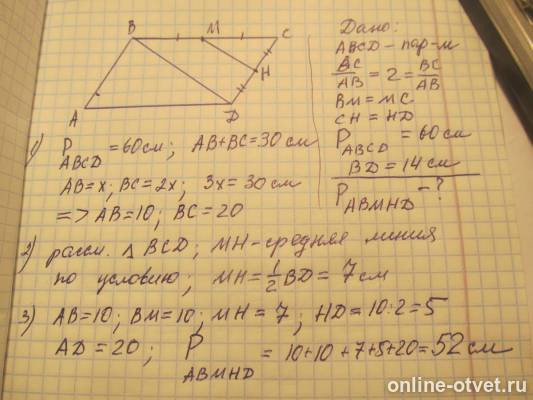 B M C
H
A D
Дано:
ABCD – пар-м
BC/AB = 2 = BC/AB
BM = MC
CH = HD
P ABCD = 60 см
BD = 14 см
P ABMHD – ?
1) P ABCD = 60 см; AB+BC = 30 см
AB = x; BC = 2x; 3x = 30 см
=> AB = 10; BC = 20
2) рассм. △ BCD; MH – средняя линия
по условию; MH = 1/2 BD = 7 см
3) AB = 10; BM = 10; MH = 7; HD = 10:2 = 5
AD = 20; P ABMHD = 10+10+7+5+20 = 52 см
online-otvet.ru